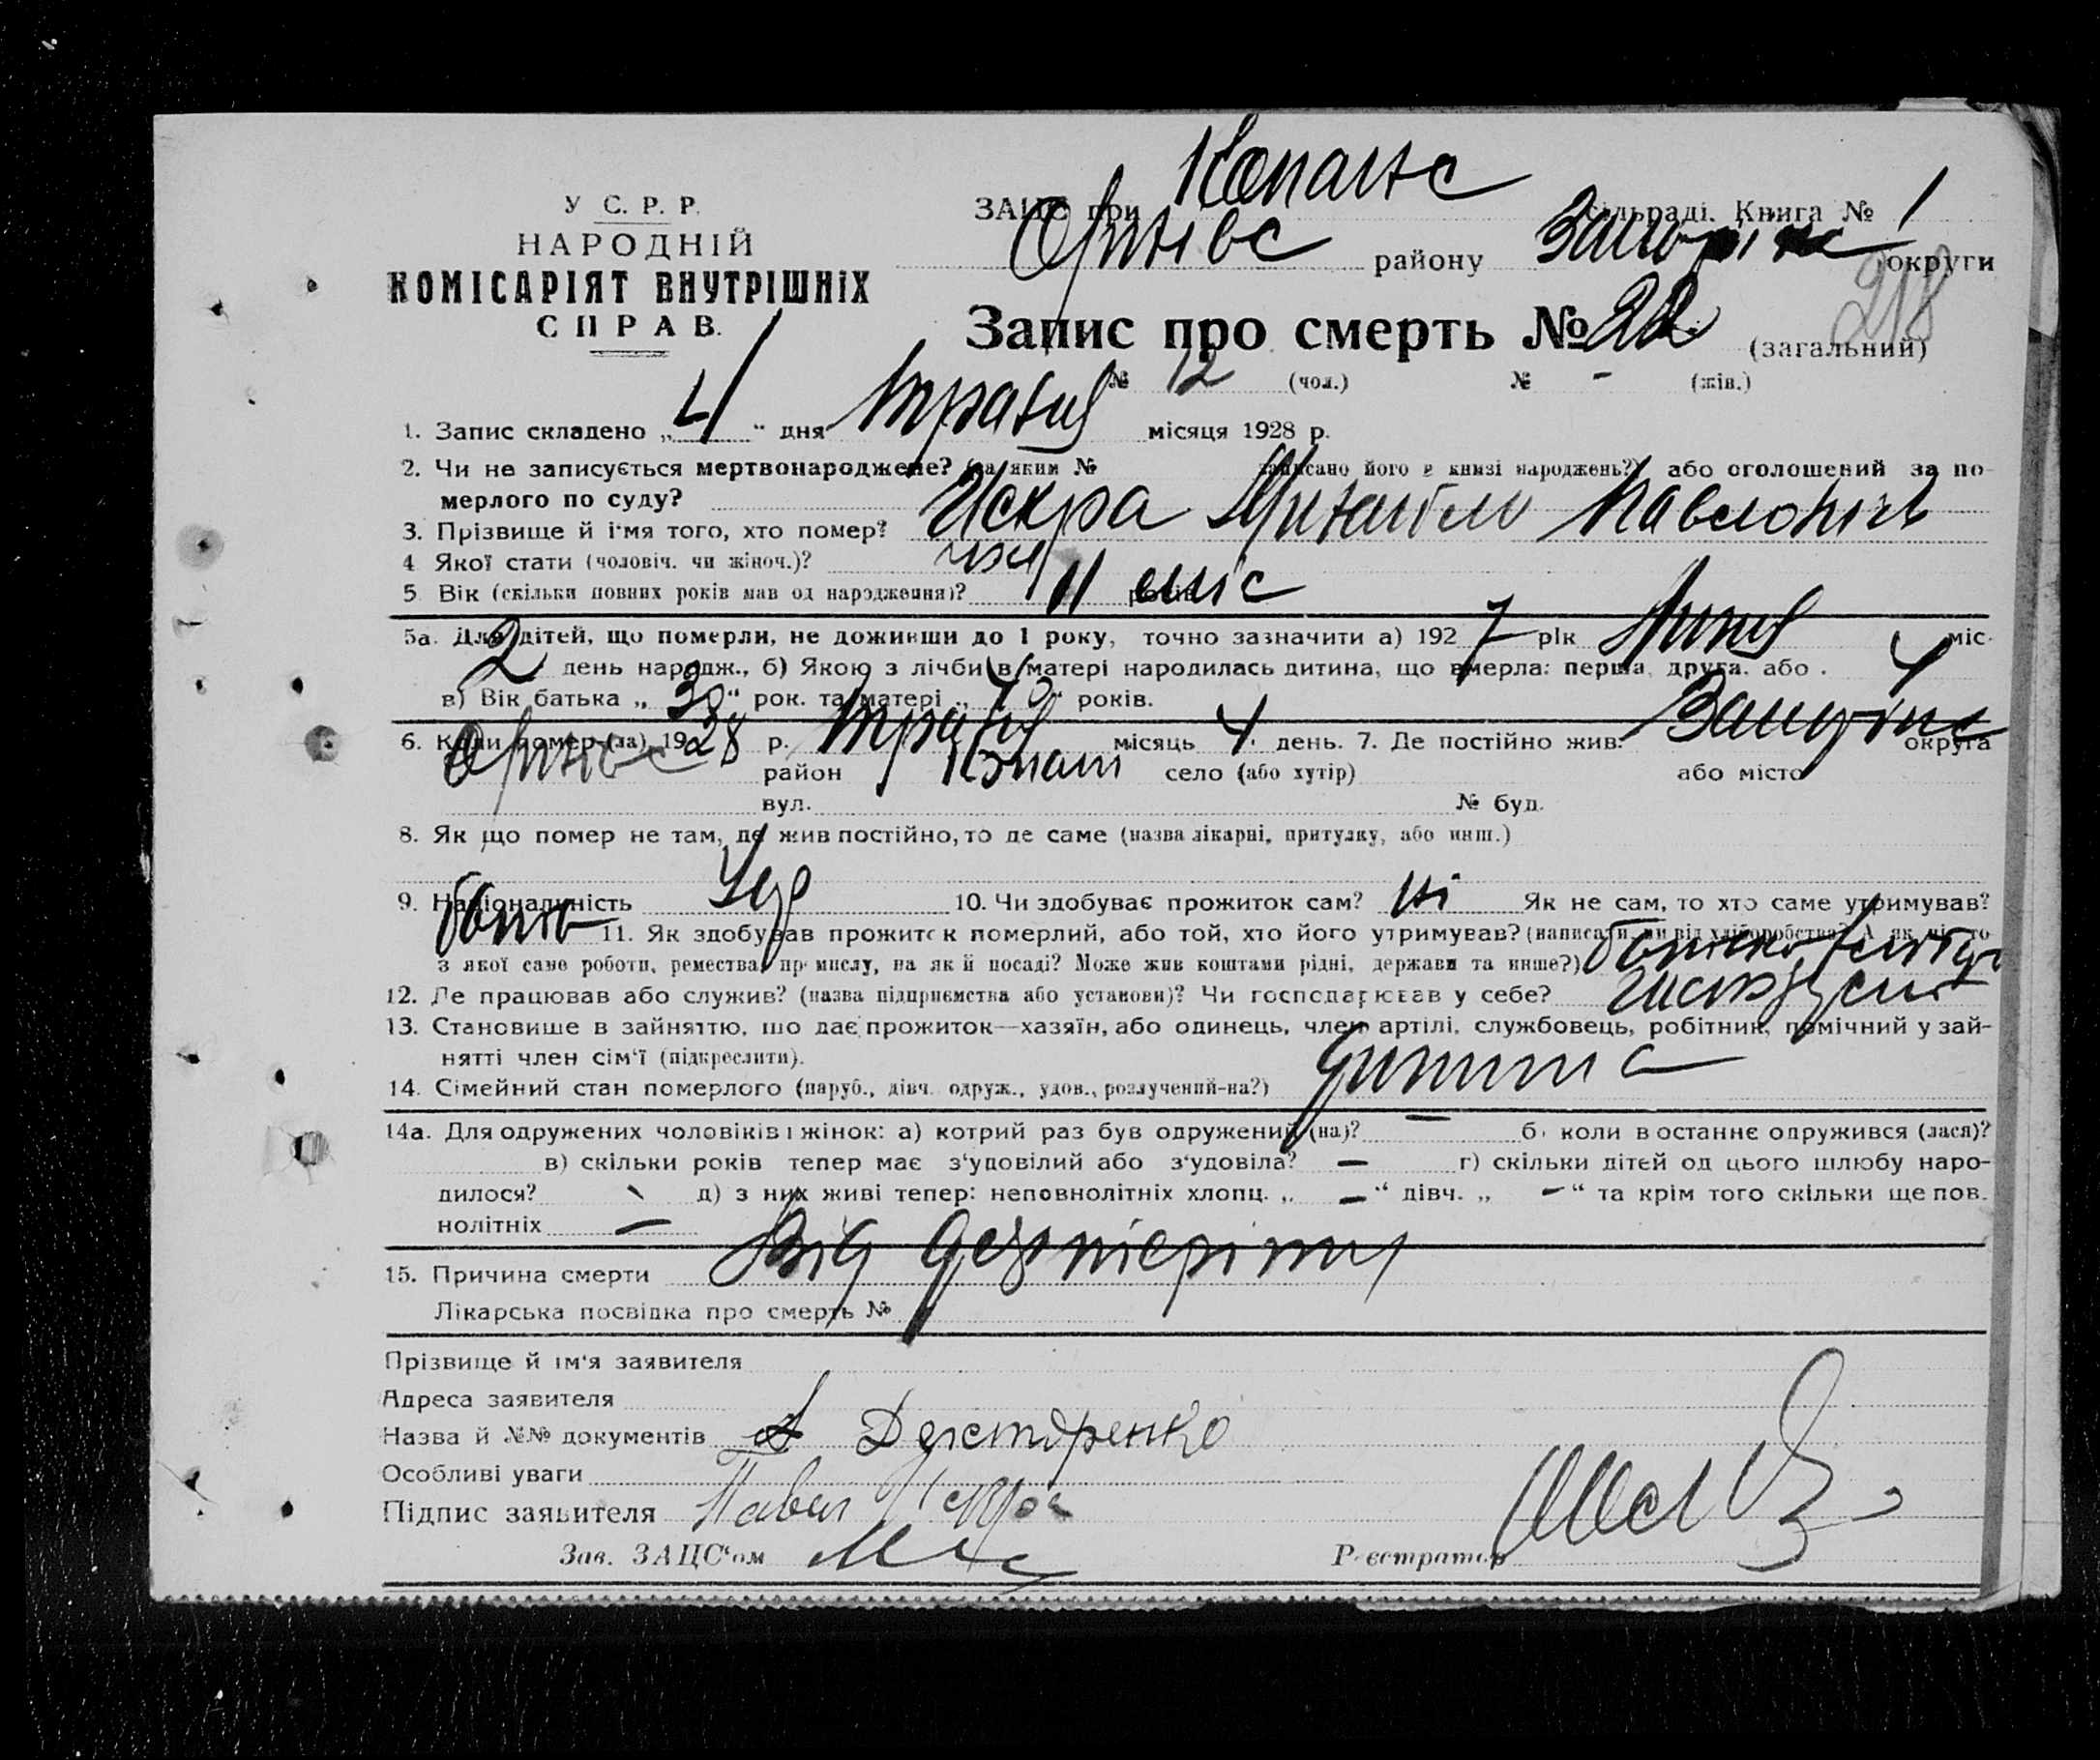 У С. Р. Р.
НАРОДНІЙ
КОМІСАРІЯТ ВНУТРІШНІХ
СПРАВ.
ЗАЦС при Копансь сільраді. Книга № 1
Оріхівс району Запоріжс округи
Запис про смерть № 22 (загальний)
218
№ 12 (чол.) № - (жін.)
1. Запис складено „ 4 “ дня травня місяця 1928 р.
2. Чи не записується мертвонароджене? (за яким № записано його в книзі народжень?) або оголошений за по-
мерлого по суду?
3. Прізвище й ім'я того, хто помер? Искра Павлович
4 Якої стати (чоловіч. чи жіноч.)? чол
5. Вік (скільки повних років мав од народження)? 11 років міс
5а. Для дітей, що померли, не доживши до 1 року, точно зазначити а) 1927 рік міс.
2 день народж., б) Якою з лічби в матері народилась дитина, що вмерла: перша, друга, або 4
в) Вік батька „ 30 “ рок. та матері „ “ років.
6. Коли помер (ла) 1928 р. травня місяць 4 день. 7. Де постійно жив: Запоріжс округа
Оріхівс район Копані село (або хутір) або місто
вул. № буд.
8. Як що помер не там, де жив постійно, то де саме (назва лікарні, притулку, або инш.)
9. Національність Укр 10. Чи здобуває прожиток сам? ні Як не сам, то хто саме утримував?
батько 11. Як здобував прожиток померлий, або той, хто його утримував? (написати, чи від хліборобства? А як ні, то
з якої саме роботи, ремества, промислу, на якій посаді? Може жив коштами рідні, держави та инше?)
12. Де працював або служив? (назва підприємства або установи)? Чи господарював у себе?
13. Становище в зайняттю, що дає прожиток—хазяїн, або одинець, член артілі, службовець, робітник, помічний у зай-
нятті член сім'ї (підкреслити).
14. Сімейний стан померлого (паруб., дівч. одруж., удов., розлучений-на?) дитина
14а. Для одружених чоловіків і жінок: а) котрий раз був одружений (на)? — б) коли в останнє одружився (лася)?
в) скільки років тепер має з'удовілий або з'удовіла? — г) скільки дітей од цього шлюбу наро-
дилося? д) з них живі тепер: неповнолітніх хлопц. „ — “ дівч. „ — “ та крім того скільки ще пов.
нолітніх —
15. Причина смерти Від
Лікарська посвідка про смерть №
Прізвище й ім'я заявителя
Адреса заявителя
Назва й №№ документів
Особливі уваги
Підпис заявителя Павел Искра
Зав. ЗАЦС'ом
Реєстратор